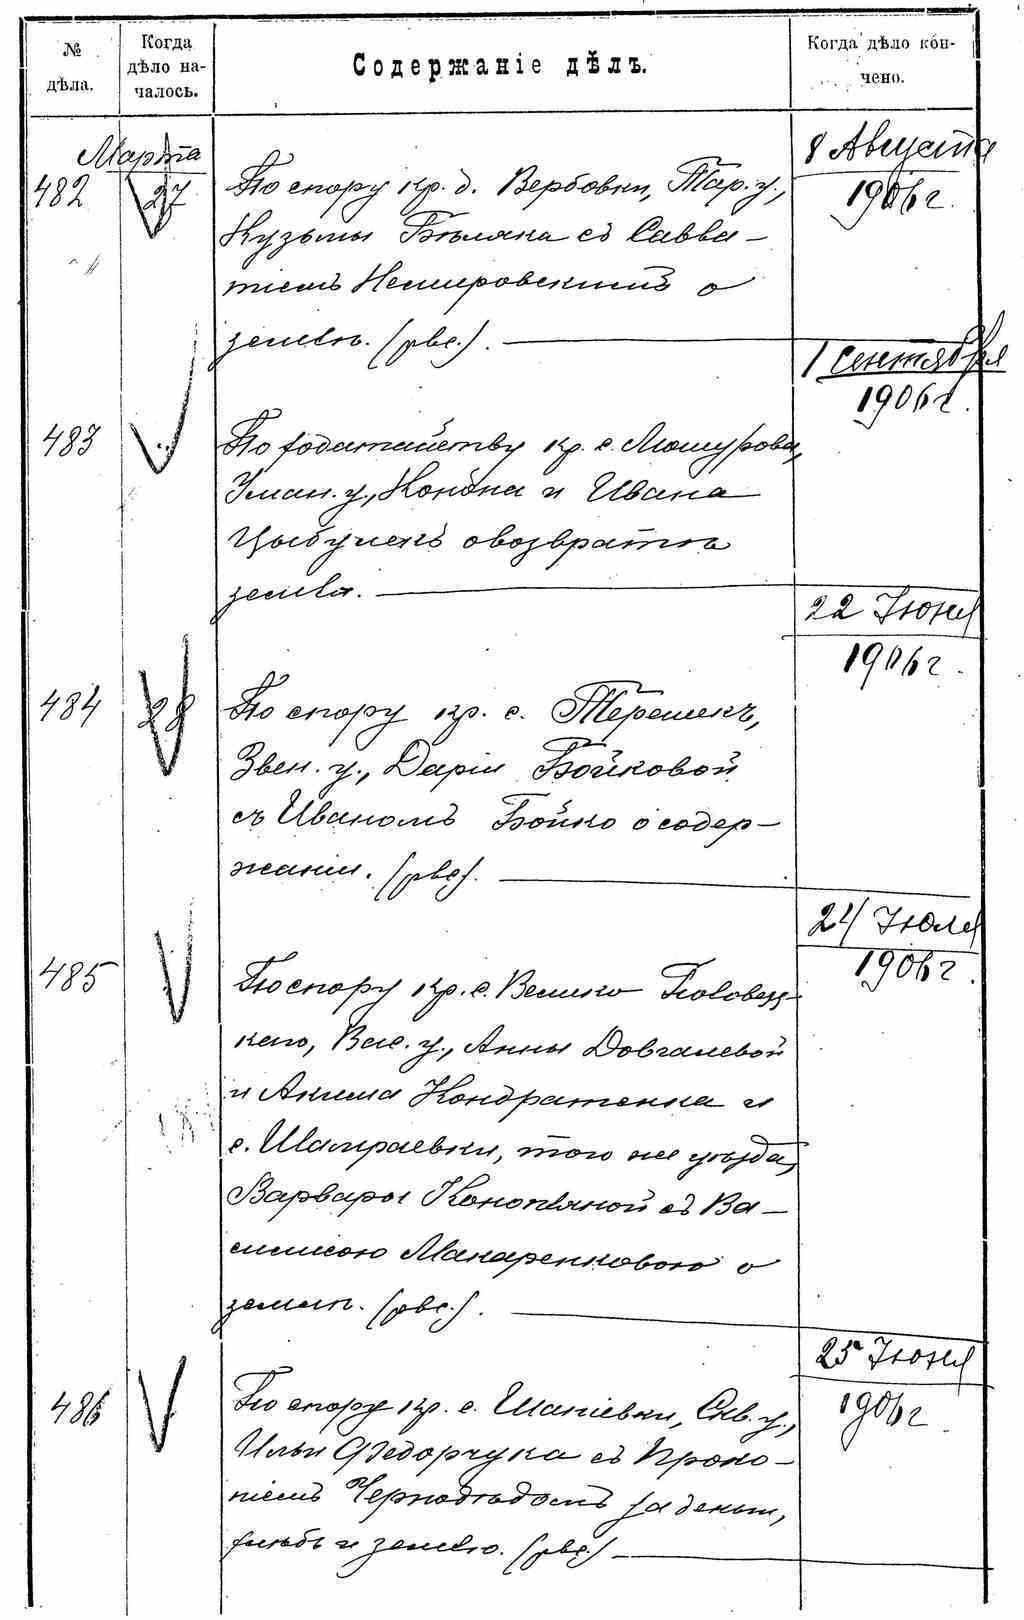 № дѣла.
Когда дѣло на-
чалось.
Содержаніе дѣлъ.
Когда дѣло кон-
чено.
Марта
482
27
По спору кр. д. Вербовки, Тар. у.,
Кузьмы Бѣляка съ Савва-
тіемъ Немировскимъ о
землѣ. (рвс.).
8 Августа
1906 г.
483
По ходатайству кр. с. Мошурова,
Уман. у., Конона и Ивана
Цыбулекъ о возвратѣ
земли.
1 Сентября
1906 г.
484
28
По спору кр. с. Терешекъ,
Звен. у., Даріи Бойковой
съ Иваномъ Бойко о содер-
жаніи. (рвс).
22 Июня
1906 г.
485
По спору кр. с. Велико Половец-
каго, Вас. у., Анны Довгалевой
и Акима Кондратенка и
с. Шамраевки, того же уѣзда,
Варвары Конопляной съ Ва-
силисою Макаренковою о
землѣ. (рвс.).
24 Июля
1906 г.
486
По спору кр. с. Шапіевки, Скв. у.,
Ильи Федорчука съ Проко-
піемъ Чернодѣдомъ за деньги,
хлѣбъ и землю. (рвс.)
25 Июня
1906 г.